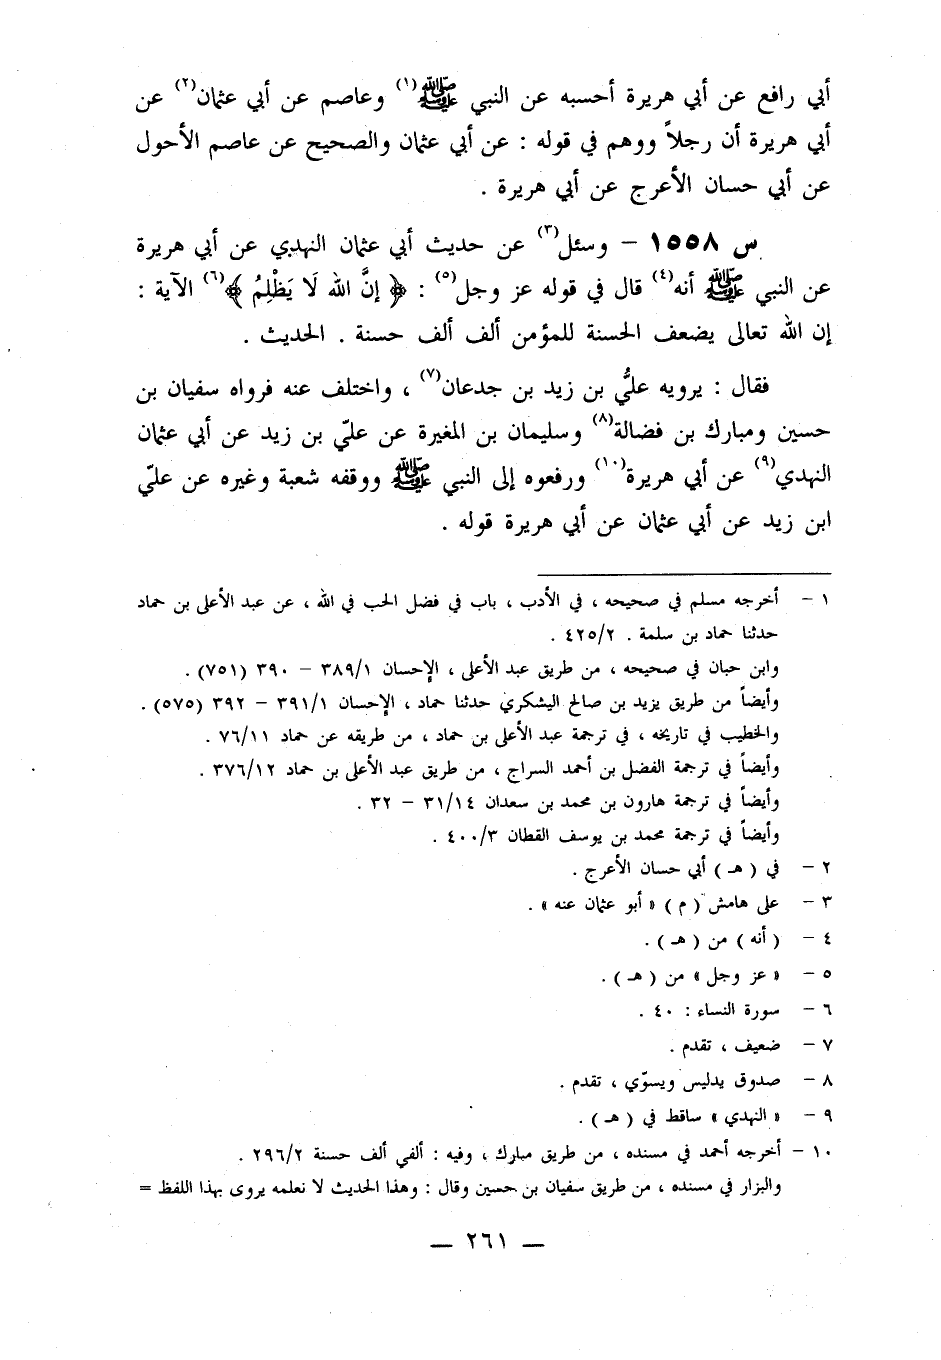 أبي رافع عن أبي هريرة أحسبه عن النبي ﷺ(١) وعاصم عن أبي عثمان(٢) عن
أبي هريرة أن رجلاً ووهم في قوله : عن أبي عثمان والصحيح عن عاصم الأحول
عن أبي حسان الأعرج عن أبي هريرة .
س ١٥٥٨ – وسئل(٣) عن حديث أبي عثمان النهدي عن أبي هريرة
عن النبي ﷺ أنه(٤) قال في قوله عز وجل(٥) : ﴿ إنَّ الله لَا يَظْلِمُ ﴾(٦) الآية :
إن الله تعالى يضعف الحسنة للمؤمن ألف ألف حسنة . الحديث .
فقال : يرويه عليُّ بن زيد بن جدعان(٧) ، واختلف عنه فرواه سفيان بن
حسين ومبارك بن فضالة(٨) وسليمان بن المغيرة عن عليّ بن زيد عن أبي عثمان
النهدي(٩) عن أبي هريرة(١٠) ورفعوه إلى النبي ﷺ ووقفه شعبة وغيره عن عليّ
ابن زيد عن أبي عثمان عن أبي هريرة قوله .
١ – أخرجه مسلم في صحيحه ، في الأدب ، باب في فضل الحب في الله ، عن عبد الأعلى بن حماد
حدثنا حماد بن سلمة . ٤٢٥/٢ .
وابن حبان في صحيحه ، من طريق عبد الأعلى ، الإحسان ٣٨٩/١ – ٣٩٠ (٧٥١) .
وأيضاً من طريق يزيد بن صالح اليشكري حدثنا حماد ، الإحسان ٣٩١/١ – ٣٩٢ (٥٧٥) .
والخطيب في تاريخه ، في ترجمة عبد الأعلى بن حماد ، من طريقه عن حماد ٧٦/١١ .
وأيضاً في ترجمة الفضل بن أحمد السراج ، من طريق عبد الأعلى بن حماد ٣٧٦/١٢ .
وأيضاً في ترجمة هارون بن محمد بن سعدان ٣١/١٤ – ٣٢ .
وأيضاً في ترجمة محمد بن يوسف القطان ٤٠٠/٣ .
٢ – في ( هـ ) أبي حسان الأعرج .
٣ – على هامش ( م ) « أبو عثمان عنه » .
٤ – ( أنه ) من ( هـ ) .
٥ – « عز وجل » من ( هـ ) .
٦ – سورة النساء : ٤٠ .
٧ – ضعيف ، تقدم .
٨ – صدوق يدليس ويسوّي ، تقدم .
٩ – « النهدي » ساقط في ( هـ ) .
١٠ – أخرجه أحمد في مسنده ، من طريق مبارك ، وفيه : ألفي ألف حسنة ٢٩٦/٢ .
والبزار في مسنده ، من طريق سفيان بن حسين وقال : وهذا الحديث لا نعلمه يروى بهذا اللفظ =
— ٢٦١ —